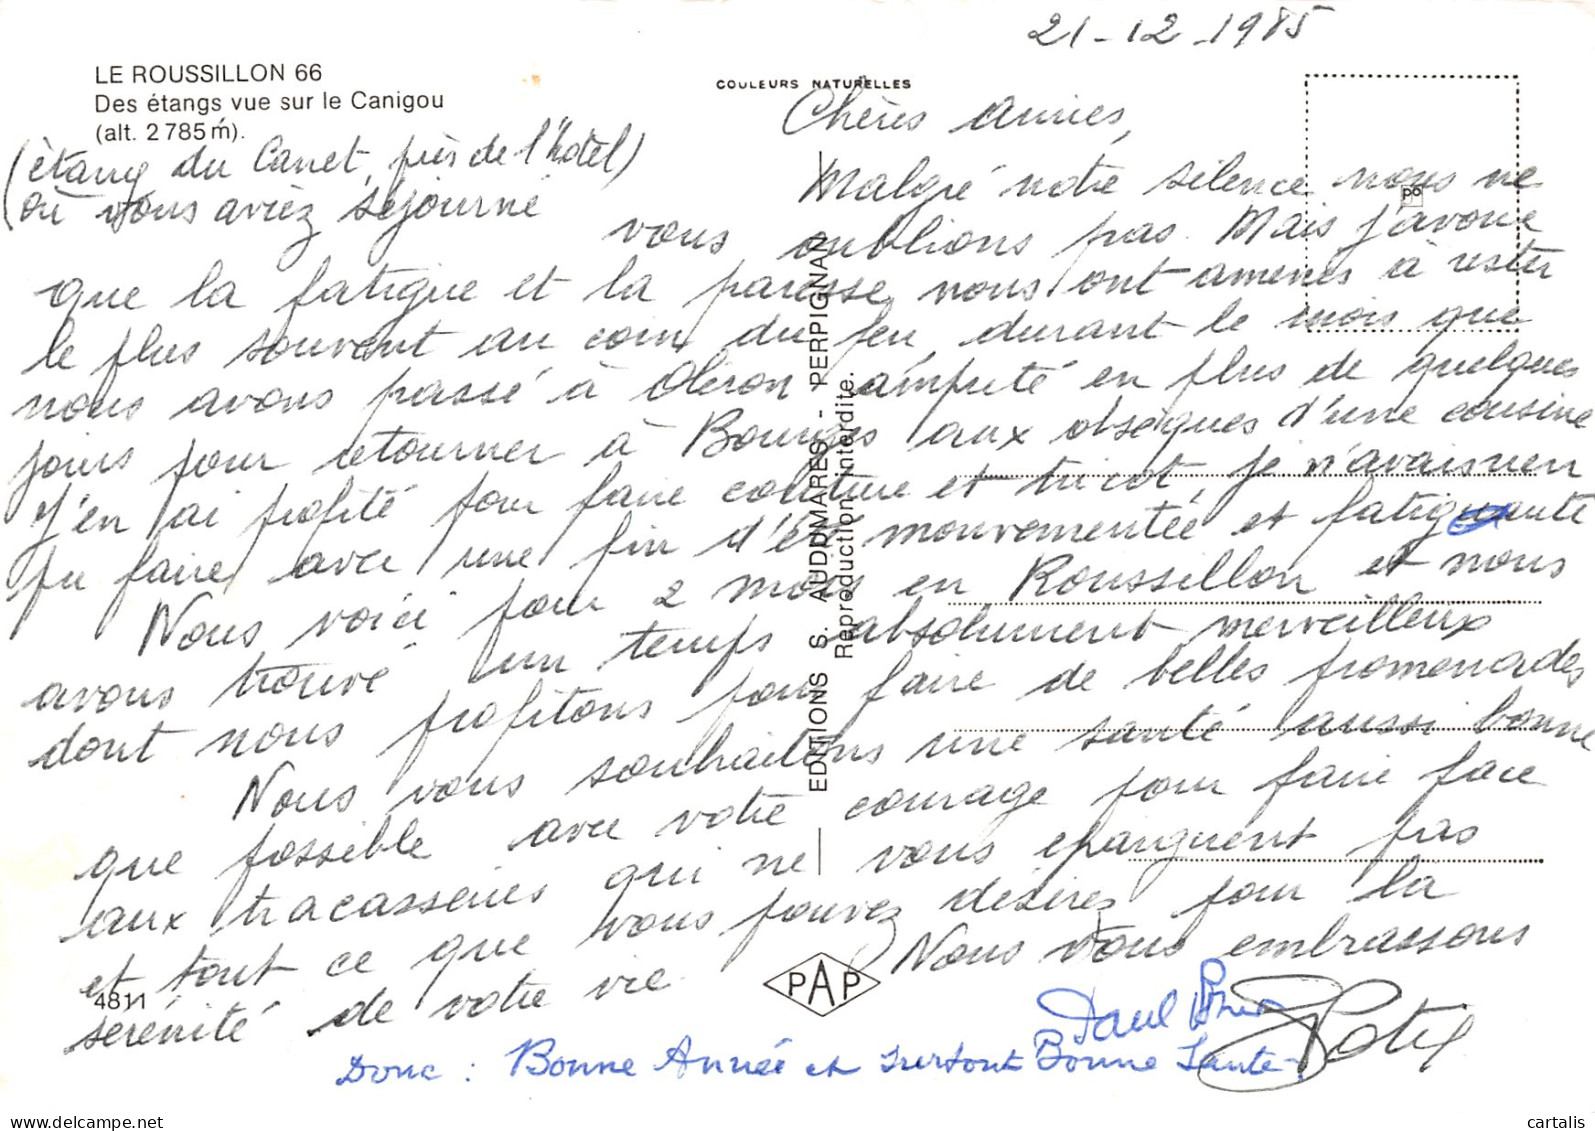 21-12-1985
LE ROUSSILLON 66
Des étangs vue sur le Canigou
(alt. 2 785 m).
COULEURS NATURELLES
(étang du Canet, près de l'hotel)
(où vous aviez séjourné
Chères amies,
Malgré notre silence nous ne
vous oublions pas. Mais j'avoue
que la fatigue et la paresse nous ont amenés à rester
le plus souvent au coin du feu, durant le mois que
nous avons passé à Oléron amputé en plus de quelques
jours pour retourner à Bourges aux obsèques d'une cousine
J'en ai profité pour faire couture et tricot, je n'avais rien
pu faire avec une fin d'été mouvementée et fatiguante
Nous voici pour 2 mois en Roussillon et nous
avons trouvé un temps absolument merveilleux
dont nous profitons pour faire de belles promenades
Nous vous souhaitons une santé aussi bonne
que possible avec votre courage pour faire face
aux tracasseries qui ne vous épargnent pas
et tout ce que vous pouvez désirer pour la
sérénité de votre vie. Nous vous embrassons
Paul
Donc : Bonne Année et surtout Bonne Santé
EDITIONS S. AUDUMARES - PERPIGNAN
Reproduction interdite.
PAP
4811
cartalis
www.delcampe.net